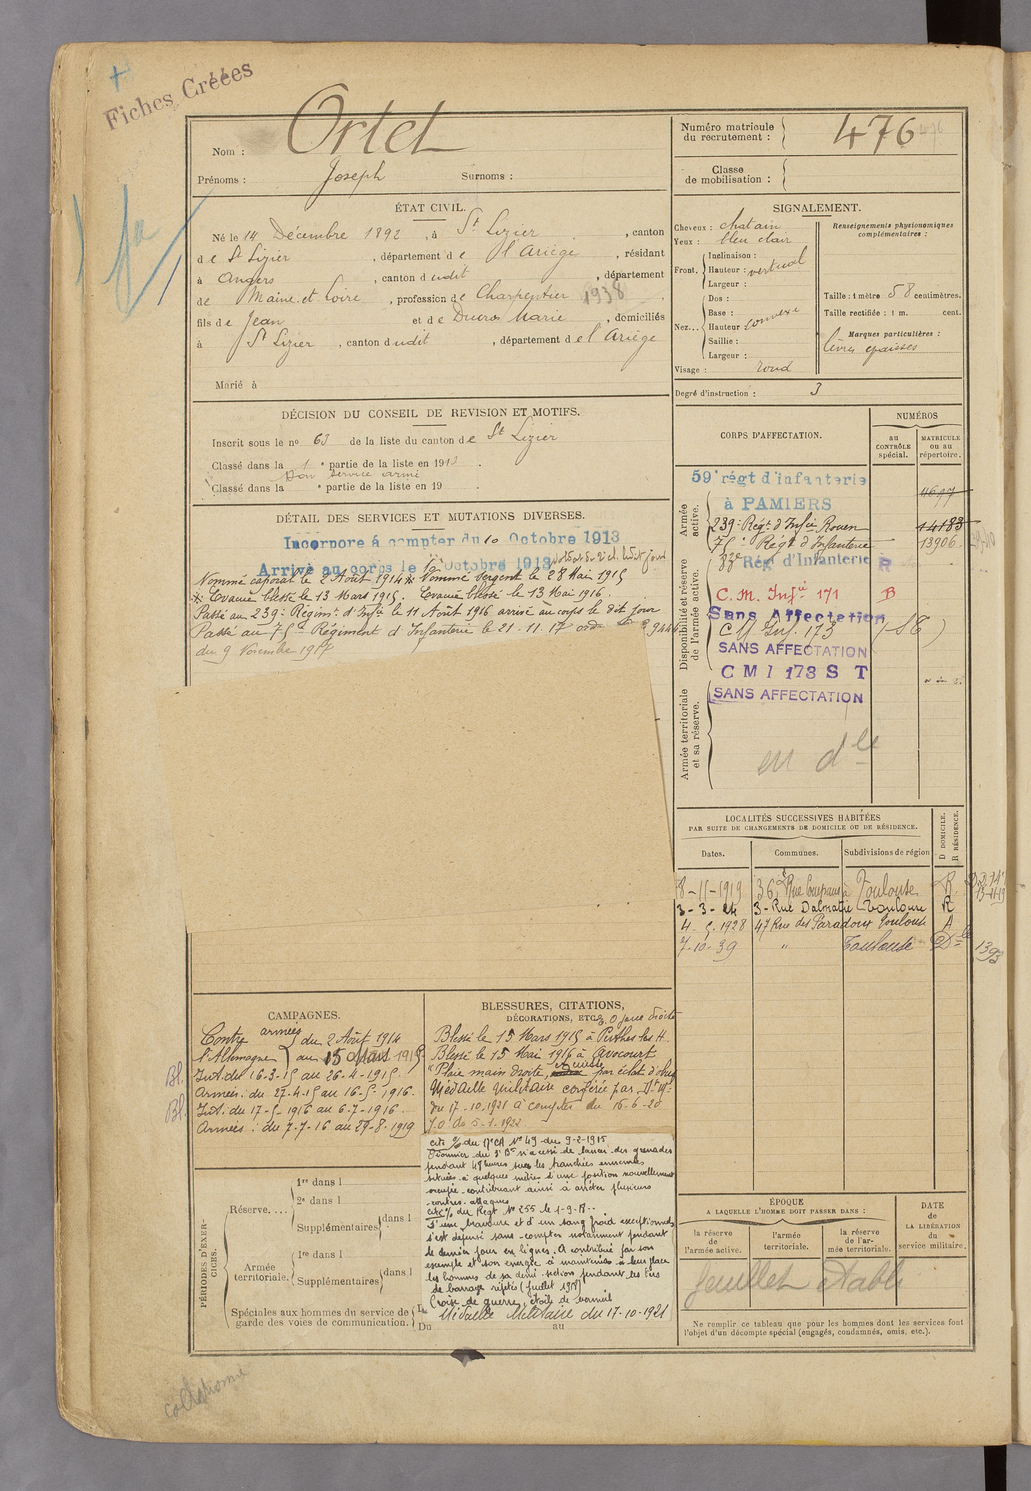 Fiches Créées
Nom : Ortet
Prénoms : Joseph Surnoms :
Numéro matricule du recrutement : 476
Classe de mobilisation :
ÉTAT CIVIL.
Né le 14 Décembre 1892, à St Lizier, canton
de St Lizier, département de l'Ariège, résidant
à Angers, canton dudit, département
de Maine et Loire, profession de Charpentier 1938
fils de Jean et de Ducros Marie, domiciliés
à St Lizier, canton dudit, département de l'Ariège
Marié à
SIGNALEMENT.
Cheveux : chatain
Yeux : bleu clair
Front. Inclinaison :
Hauteur : vertical
Largeur :
Nez... Dos :
Base :
Hauteur convexe
Saillie :
Largeur :
Visage : rond
Renseignements physionomiques complémentaires :
Taille : 1 mètre 58 centimètres.
Taille rectifiée : 1 m. cent.
Marques particulières :
lèvres épaisses
Degré d'instruction : 3
DÉCISION DU CONSEIL DE REVISION ET MOTIFS.
Inscrit sous le no 63 de la liste du canton de St Lizier
Classé dans la 1e partie de la liste en 1913.
Bon service armé
Classé dans la e partie de la liste en 19
DÉTAIL DES SERVICES ET MUTATIONS DIVERSES.
Incorporé à compter du 10 Octobre 1913
Arrivé au corps le 10 Octobre 1913 ledit jour
Nommé caporal le 2 Août 1914 * Nommé sergent le 28 Mai 1915
* Evacué blessé le 13 Mars 1915. Evacué blessé le 13 Mai 1916.
Passé au 239e Régimt d'Infie le 11 Août 1916 arrivé au corps le dit jour
Passé au 75e Régiment d'Infanterie le 21-11-17
du 9 Novembre 1917
CORPS D'AFFECTATION.
NUMÉROS
au CONTRÔLE spécial.
MATRICULE ou au répertoire.
Armée active.
59e régt d'infanterie
à PAMIERS
239e Régt d'Infie Rouen 14183
75e Régt d'Infanterie 13906
Disponibilité et réserve de l'armée active.
83e Rég. d'Infanterie R
C. M. Infie 171 B
Sans Affectation
CM Inf. 173 (ST)
SANS AFFECTATION
C M I 173 S T
SANS AFFECTATION
Armée territoriale et sa réserve.
en dle
LOCALITÉS SUCCESSIVES HABITÉES
PAR SUITE DE CHANGEMENTS DE DOMICILE OU DE RÉSIDENCE.
Dates. Communes. Subdivisions de région D DOMICILE. R RÉSIDENCE.
8-11-1919 36, Rue Toulouse R
3-3-24 3 - Rue Dalmatie Toulouse R
4-5-1928 47 Rue des Paradoux Toulouse A
7-10-39 " Toulouse Dle 1393
CAMPAGNES.
Contre l'Allemagne armées du 2 Août 1914
au 15 Mars 1915
Int. du 16-3-15 au 26-4-1915.
Armées : du 27-4-15 au 16-5-1916.
Int. du 17-5-1916 au 6-7-1916.
Armées : du 7-7-16 au 27-8-1919
Bl.
Bl.
BLESSURES, CITATIONS,
DÉCORATIONS, ETC.
Blessé le 15 Mars 1915 à Perthes les H.
Blessé le 15 Mai 1916 à Avocourt
"Plaie main droite, et cuisse par éclat d'obus
Médaille Militaire conférée par Dt Mel
du 17-10-1921 à compter du 16-6-20
J.O. du 5-1-1922
Cité % du 17e CA No 49 du 9-2-1915
pendant 48 heures sur les tranchées ennemies
situées à quelques mètres d'une position nouvellement
occupée contribuant ainsi à arrêter plusieurs
contres-attaques
Cité % du Regt No 255 le 1-9-18..
D'une bravoure et d'un sang froid exceptionnels
s'est dépensé sans compter notamment pendant
le dernier jour en lignes. A contribué par son
exemple et son énergie à maintenir à leur place
les hommes de sa demi-section pendant les tirs
de barrage répétés (Juillet 1918)
Croix de guerre, étoile de vermeil
Médaille Militaire du 17-10-1921
PÉRIODES D'EXERCICES.
Réserve....
1re dans l
2e dans l
Supplémentaires dans l
Armée territoriale.
1re dans l
Supplémentaires dans l
Spéciales aux hommes du service de garde des voies de communication.
Du au
ÉPOQUE
A LAQUELLE L'HOMME DOIT PASSER DANS :
la réserve de l'armée active.
l'armée territoriale.
la réserve de l'armée territoriale.
DATE de LA LIBÉRATION du service militaire.
feuillet établi
Ne remplir ce tableau que pour les hommes dont les services font l'objet d'un décompte spécial (engagés, condamnés, omis, etc.).
collationné